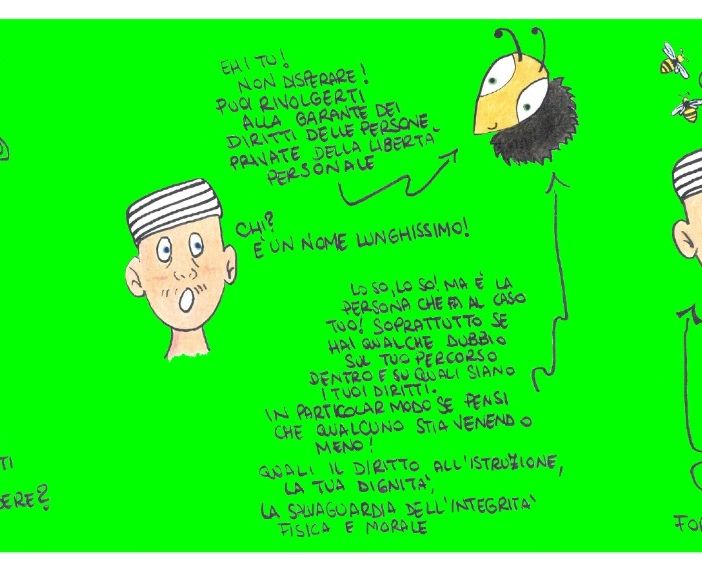 EHI TU!
NON DISPERARE!
PUOI RIVOLGERTI
ALLA GARANTE DEI
DIRITTI DELLE PERSONE
PRIVATE DELLA LIBERTÀ
PERSONALE
CHI?
E' UN NOME LUNGHISSIMO!
LO SO, LO SO! MA È LA
PERSONA CHE FA AL CASO
TUO! SOPRATTUTTO SE
HAI QUALCHE DUBBIO
SUL TUO PERCORSO
DENTRO E SU QUALI SIANO
I TUOI DIRITTI.
IN PARTICOLAR MODO SE PENSI
CHE QUALCUNO STIA VENENDO
MENO!
QUALI IL DIRITTO ALL'ISTRUZIONE,
LA TUA DIGNITÀ,
LA SALVAGUARDIA DELL'INTEGRITÀ
FISICA E MORALE
TI
DERE?
FOR